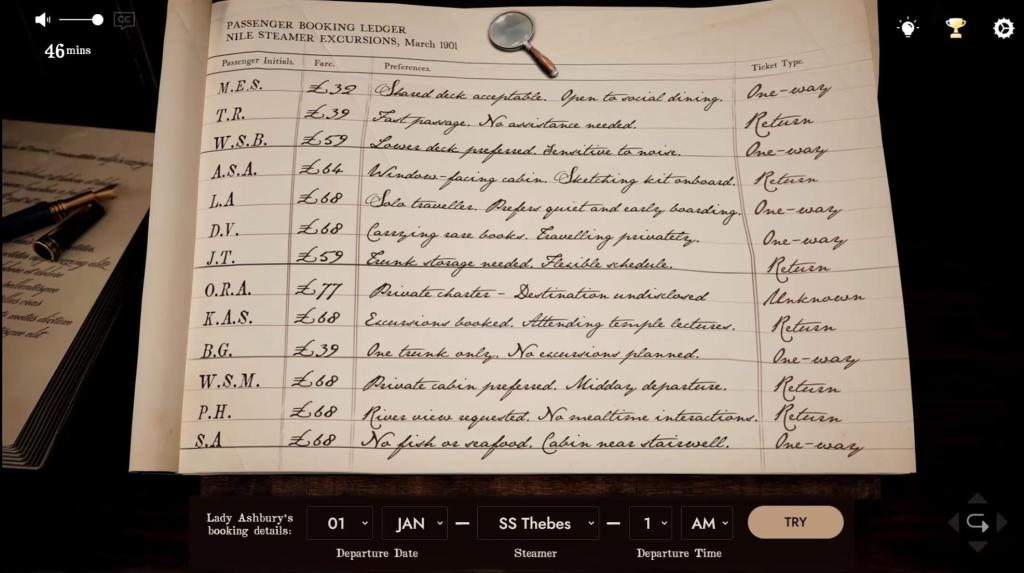 CC
46 mins
PASSENGER BOOKING LEDGER
NILE STEAMER EXCURSIONS, March 1901
Passenger Initials. Fare. Preferences. Ticket Type.
M.E.S. £32 Shared deck acceptable. Open to social dining. One-way
T.R. £39 Fast passage. No assistance needed. Return
W.S.B. £59 Lower deck preferred. Sensitive to noise. One-way
A.S.A. £64 Window-facing cabin. Sketching kit onboard. Return
L.A £68 Solo traveller. Prefers quiet and early boarding. One-way
D.V. £68 Carrying rare books. Travelling privately. One-way
J.T. £59 Trunk storage needed. Flexible schedule. Return
O.R.A. £77 Private charter - Destination undisclosed Unknown
K.A.S. £68 Excursions booked. Attending temple lectures. Return
B.G. £39 One trunk only. No excursions planned. One-way
W.S.M. £68 Private cabin preferred. Midday departure. Return
P.H. £68 River view requested. No mealtime interactions. Return
S.A £68 No fish or seafood. Cabin near stairwell. One-way
Lady Ashbury's
booking details:
01 JAN — SS Thebes — 1 AM TRY
Departure Date Steamer Departure Time